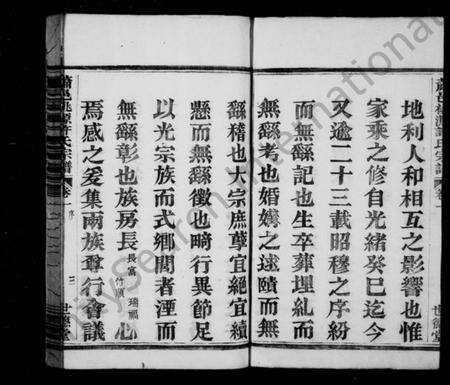 地利人和相互之影響也惟
家乘之修自光緒癸巳迄今
又逾二十三載昭穆之序紛
而無繇記也生卒葬埋紊而
無繇考也婚媾之逑賾而無
繇稽也大宗庶孽宜絕宜續
懸而無繇徵也畸行異節足
以光宗族而式鄉閭者湮而
無繇彰也族房長長富 瑞陽心
焉感之爰集兩族尊行會議
蕭邑桃源許氏宗譜 卷一 序 三 世德堂